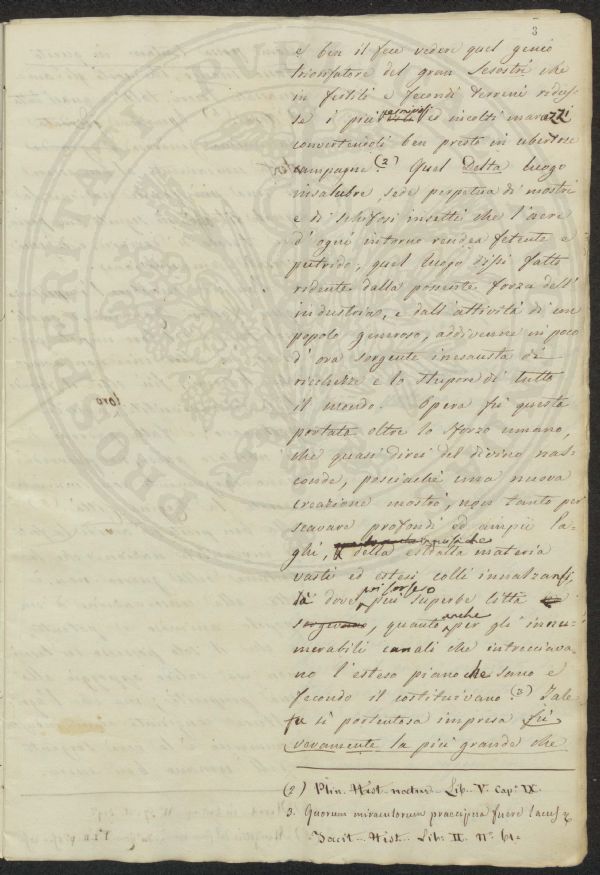 3
e ben il fece vedere quel genio
trionfatore del gran Sesostri che
in fertili e fecondi terreni ridus-
se i più ed incolti marazzi
convertendoli ben presto in ubertose
campagne. (2) Quel Delta luogo
insalubre, sede perpetua di mostri
e di schifosi insetti che l'aere
d'ogni intorno rendea fetente e
putrido, quel luogo dissi fatto
ridente dalla possente forza dell'
industria, e dall'attività di un
popolo generoso, addivenne in poco
d'ora sorgente inesausta di
ricchezze e lo stupore di tutto
il mondo. Opera fù questa
portata oltre lo sforzo umano,
che quasi direi del divino nas-
conde, posciachè una nuova
creazione mostrò, non tanto per
scavare profondi ed ampii la-
ghi, della materia
vasti ed estesi colli innalzansi,
là dove poi sorsero più superbe città
sorgevano, quanto anche per gli innu-
merabili canali che intrecciava-
no l'esteso piano che sano e
fecondo il costituivano. (3) Tale
fu sì portentosa impresa fù
veramente la più grande che
loro
(2) Plin. Hist. Lib. V. cap. IX.
3. Quorum miraculorum praecipua fuere lacus
Tacit. Hist. Lib. II. N° 61=